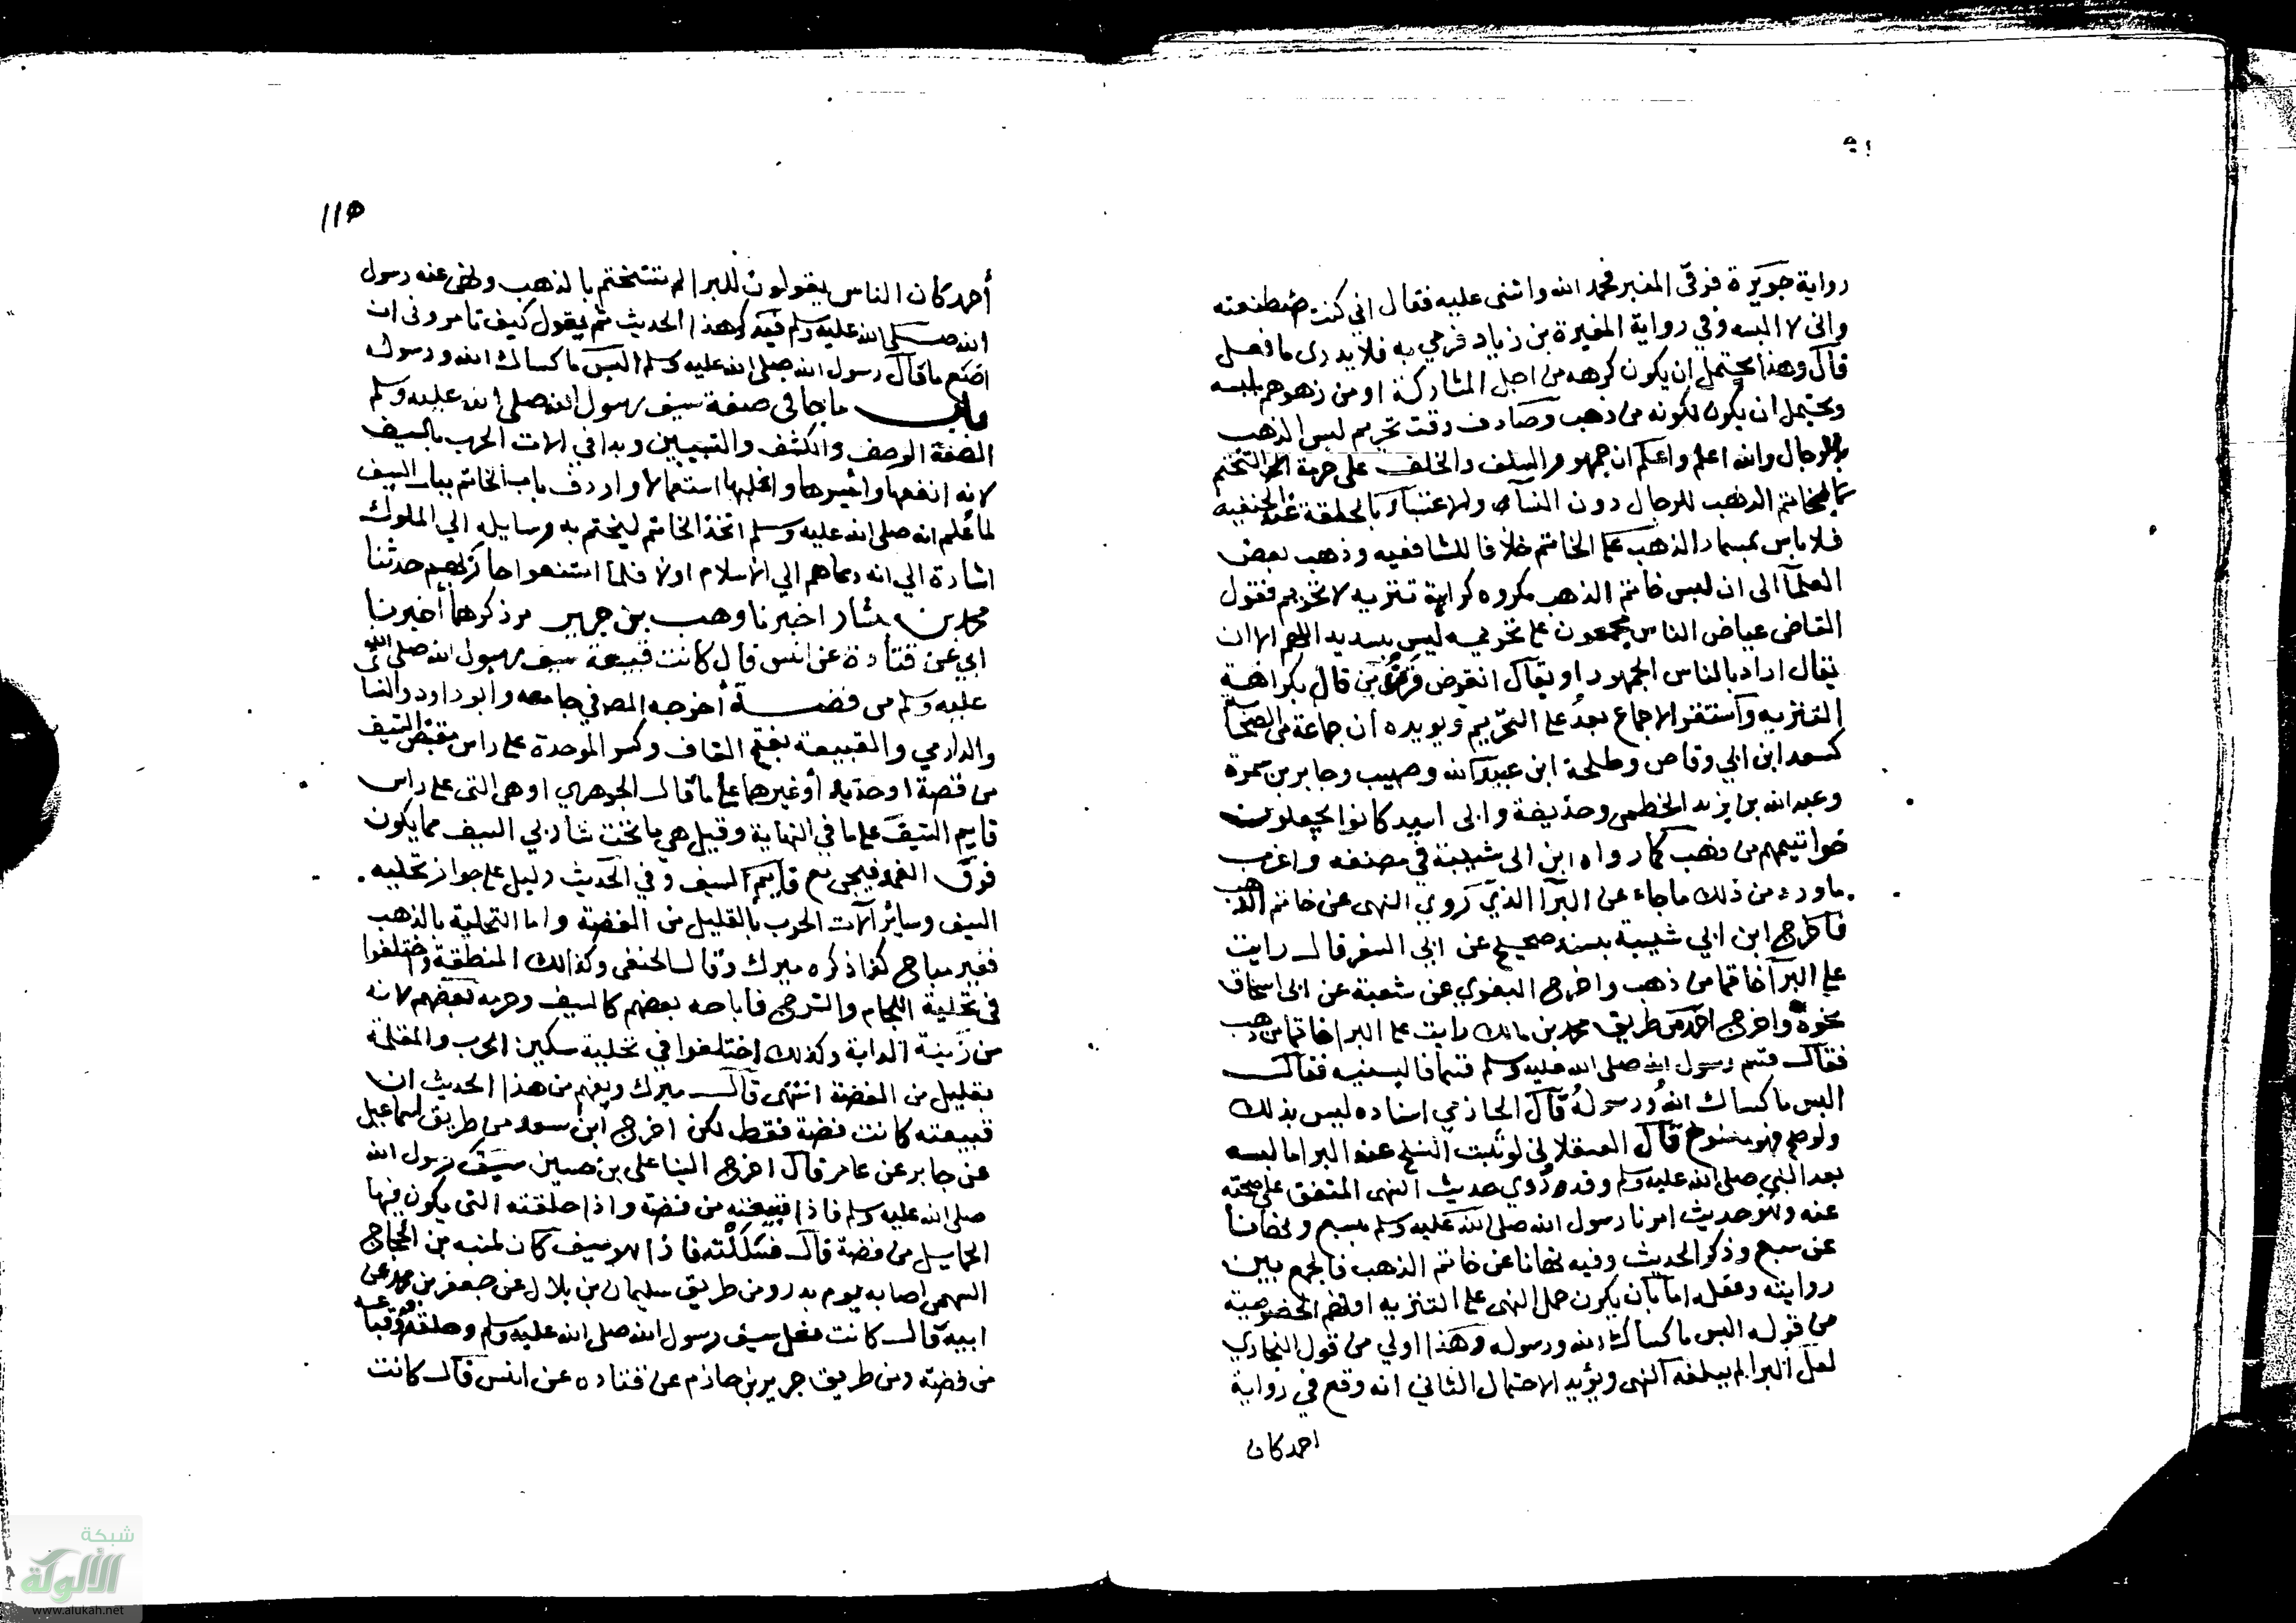 رواية جويرة فرقى المنبر فحمد الله واثنى عليه فقال اني كنت صطنعته
وانى لا البسه وفي رواية المغيرة بن زياد فرمي به فلا يدرى ما فعل
قال وهذا يحتمل ان يكون كرهه من اجل المشاركة او من زهوهم بلبسه
ويحتمل ان يكون لكونه من ذهب وصادف وقت تحريم لبس الذهب
للرجال والله اعلم واعلم ان جمهور السلف والخلف على حرمة التختم
بخاتم الذهب للرجال دون النسآء والاعتبار بالحلقة عند الحنفية
فلا باس بمسمار الذهب على الخاتم خلافا للشافعيه وذهب بعض
العلمآ الى ان لبس خاتم الذهب مكروه كراهة تنزيه لا تحريم فقول
القاضى عياض الناس مجمعون على تحريمه ليس بسديد اللهم الا ان
يقال اراد بالناس الجمهور او يقال انقرض قرن من قال بكراهية
التنزيه وآستقر الاجماع بعد على التحريم ويويده أن جماعة من الصحآ
كسعد ابن ابي وقاص وطلحة ابن عبيد الله وصهيب وجابر بن سمرة
وعبد الله بن يزيد الخطمي وحذيفة وابى اسيد كانوا يجعلون
خواتيمهم من ذهب كما رواه ابن ابى شيبة في مصنفه واغرب
ما ورد من ذلك ماجاء عن البرآ الذي روي النهى عن خاتم الذهب
فاخرج ابن ابي شيبة بسند صحيح عن ابي السفر قال رايت
على البرآ خاتما من ذهب واخرج البغوي عن شعبة عن ابى اسحاق
نحوه واخرج احمد من طريق محمد بن مالك رايت على البرا خاتما من ذهب
فقال قسم رسول الله صلى الله عليه وسلم قسما فالبسنيه فقال
البس ما كساك الله ورسوله قال الحازمي اسناده ليس بذلك
ولو صح فهو منسوخ قال العسقلانى لو ثبت النسخ عند البرا ما لبسه
بعد النبي صلى الله عليه وسلم وقد روي حديث النهى المتفق على صحته
عنه وهو حديث امرنا رسول الله صلى الله عليه وسلم بسبع ونهانا
عن سبع وذكر الحديث وفيه نهانا عن خاتم الذهب فالجمع بين
روايته وفعله اما بان يكون حمل النهى على التنزيه او فهم الخصوصية
من قوله البس ما كساك الله ورسوله وهذا اولي من قول الحازمي
لعل البرا لم يبلغه النهى ويؤيد الاحتمال الثاني انه وقع في رواية
احمد كان
١١٥
أحمد كان الناس يقولون للبرا لم تتختم بالذهب ونهى عنه رسول
الله صلى الله عليه وسلم فيذكر هذا الحديث ثم يقول كيف تامرونى ان
اضع ما قال رسول الله صلى الله عليه وسلم البس ما كساك الله ورسوله
باب ما جا فى صفة سيف رسول الله صلى الله عليه وسلم
الصفة الوصف والكشف والتبيين وبدا في الات الحرب بالسيف
لانه انفعها وايسرها واغلبها استعمالا واردف باب الخاتم بباب السيف
لما علم انه صلى الله عليه وسلم اتخذ الخاتم ليختم به رسايله الي الملوك
اشارة الي انه دعاهم الي الاسلام اولا فلما امتنعوا حاربهم حدثنا
محمد بن بشار اخبرنا وهب بن جرير مر ذكرهما أخبرنا
ابي عن قتادة عن انس قال كانت قبيعة سيف رسول الله صلى الله
عليه وسلم من فضة أخرجه المص في جامعه وابو داود والنسا
والدارمي والقبيعة بفتح القاف وكسر الموحدة على راس مقبض السيف
من فضة او حديد أو غيرهما على ما قال الجوهري او هى التى على راس
قايم السيف على ما في النهاية وقيل هي ما تحت شاربي السيف مما يكون
فوق الغمد فيجى مع قايم السيف وفي الحديث دليل على جواز تحليه
السيف وسائر آلات الحرب بالقليل من الفضة واما التحلية بالذهب
فغير مباح كذا ذكره ميرك وقال الحنفى وكذلك المنطقة واختلفوا
فى تحلية اللجام والسرج فاباحه بعضهم كالسيف وحرمه بعضهم لانه
من زينة الدابة وكذلك اختلفوا في تحلية سكين الحرب والمقلمة
بقليل من الفضة انتهى قال ميرك ويفهم من هذا الحديث ان
قبيعته كانت فضة فقط لكن اخرج ابن سعد من طريق اسماعيل
عن جابر عن عامر قال اخرج الينا على بن حسين سيف رسول الله
صلى الله عليه وسلم فاذا قبيعته من فضة واذا حلقته التى يكون فيها
الحمايل من فضة قال فسللته فاذا هو سيف كان لمنبه بن الحجاج
السهمي اصابه يوم بدر ومن طريق سليمان بن بلال عن جعفر بن محمد عن
ابيه قال كانت نعل سيف رسول الله صلى الله عليه وسلم وحلقه وقباعه
من فضة ومن طريق جرير بن حازم عن قتاده عن انس قال كانت
شبكة
الألوكة
www.alukah.net